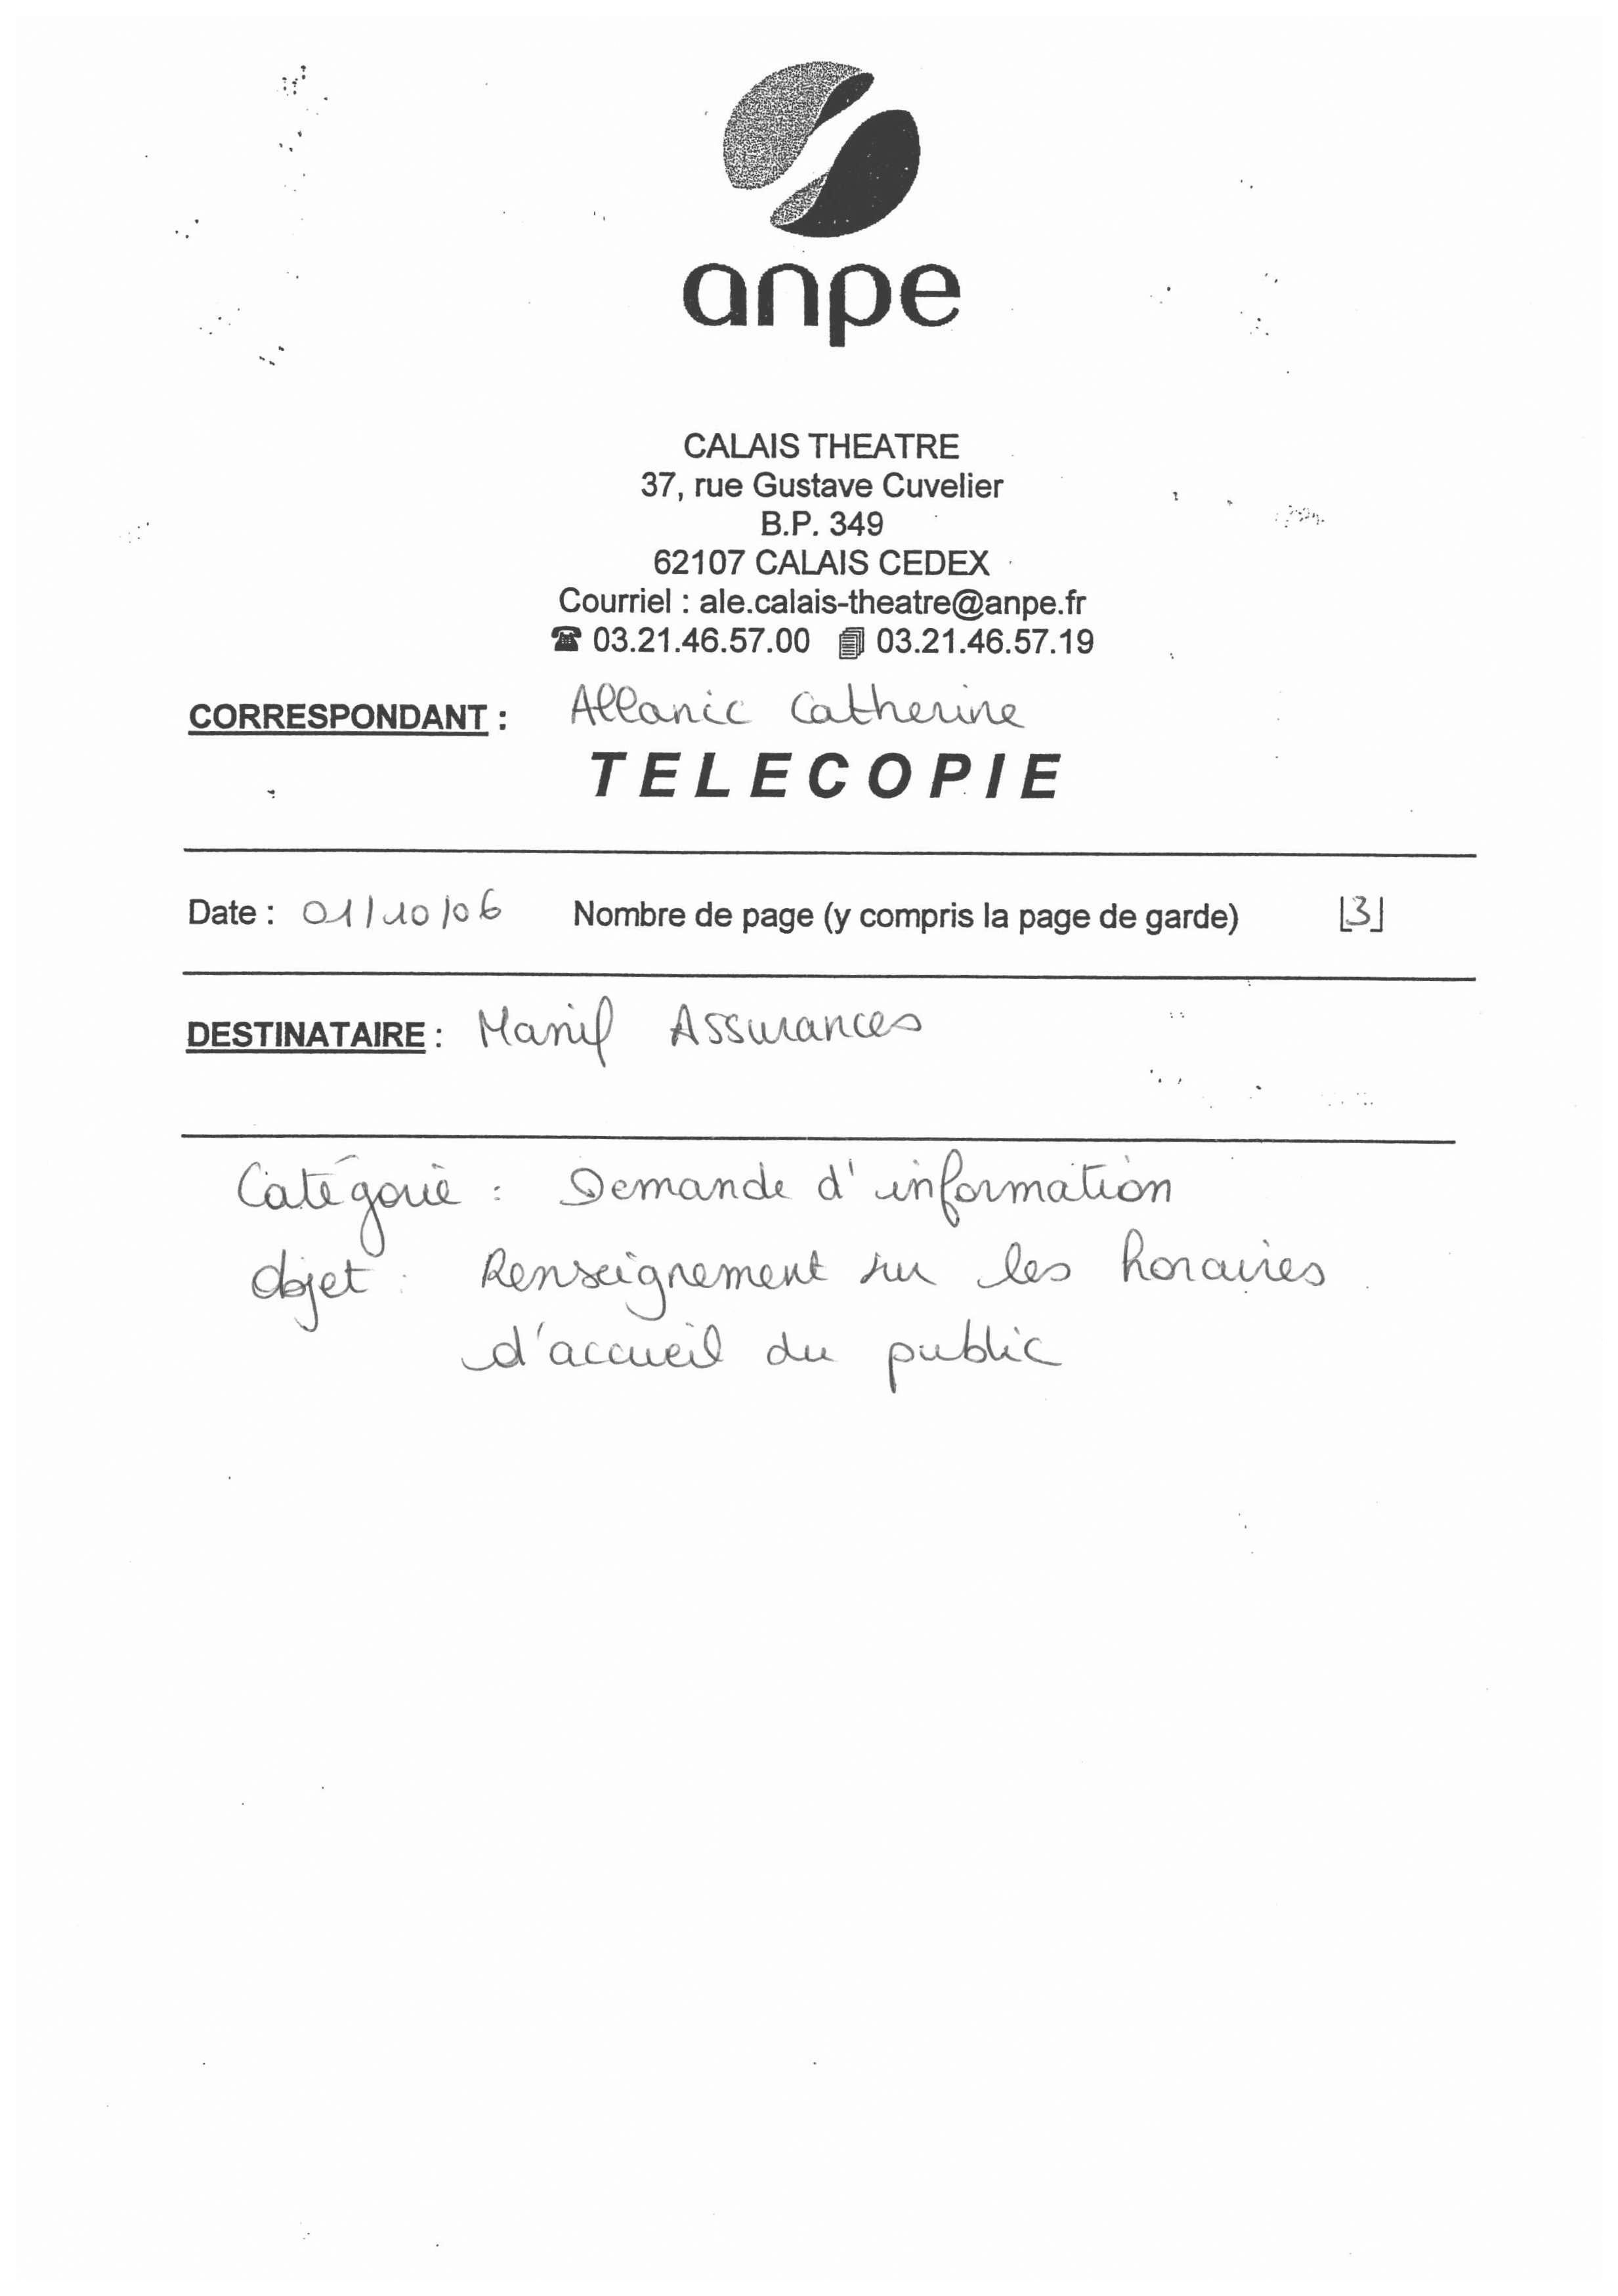 anpe
CALAIS THEATRE
37, rue Gustave Cuvelier
B.P. 349
62107 CALAIS CEDEX
Courriel : ale.calais-theatre@anpe.fr
☎ 03.21.46.57.00 03.21.46.57.19
CORRESPONDANT : Allanic Catherine
TELECOPIE
Date : 01/10/06 Nombre de page (y compris la page de garde) [3]
DESTINATAIRE : Manif Assurances
Catégorie : Demande d'information
objet : Renseignement sur les horaires
d'accueil du public